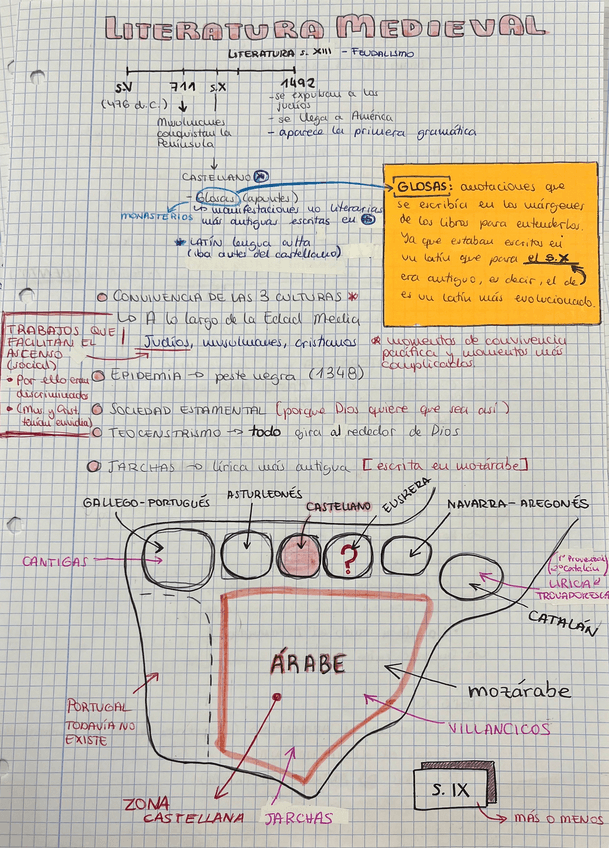 LITERATURA MEDIEVAL
LITERATURA S. XIII - FEUDALISMO
S.V 711 S.X 1492
(476 d.C.)
Musulmanes
conquistan la
Península
- se expulsan a los
judíos
- se llega a América
- aparece la primera gramática
CASTELLANO *
- Glosas (apuntes)
MONASTERIOS
↳ manifestaciones no literarias
más antiguas escritas en *
* LATÍN lengua alta
(iba antes del castellano)
GLOSAS: anotaciones que
se escribía en los márgenes
de los libros para entenderlos.
Ya que estaban escritos en
un latín que para el s.X
era antiguo, es decir, el de
es un latín más evolucionado.
CONVIVENCIA DE LAS 3 CULTURAS *
↳ A lo largo de la Edad Media
Judíos, musulmanes, cristianos
* momentos de convivencia
pacífica y momentos más
complicados.
TRABAJOS QUE
FACILITAN EL
ASCENSO
(social)
• Por ello eran
discriminados
• (Mus y Crist
tenían envidia)
EPIDEMIA → peste negra (1348)
SOCIEDAD ESTAMENTAL (porque Dios quiere que sea así)
TEOCENSTRISMO → todo gira al rededor de Dios
JARCHAS → lírica más antigua [escrita en mozárabe]
GALLEGO-PORTUGUÉS
ASTURLEONÉS
CASTELLANO
EUSKERA
NAVARRA-AREGONÉS
CANTIGAS
?
1º Provenzal
(2º Catalán)
LÍRICA
TROVADORESCA
CATALÁN
ÁRABE
mozárabe
PORTUGAL
TODAVÍA NO
EXISTE
VILLANCICOS
ZONA
CASTELLANA
JARCHAS
S. IX
MÁS O MENOS